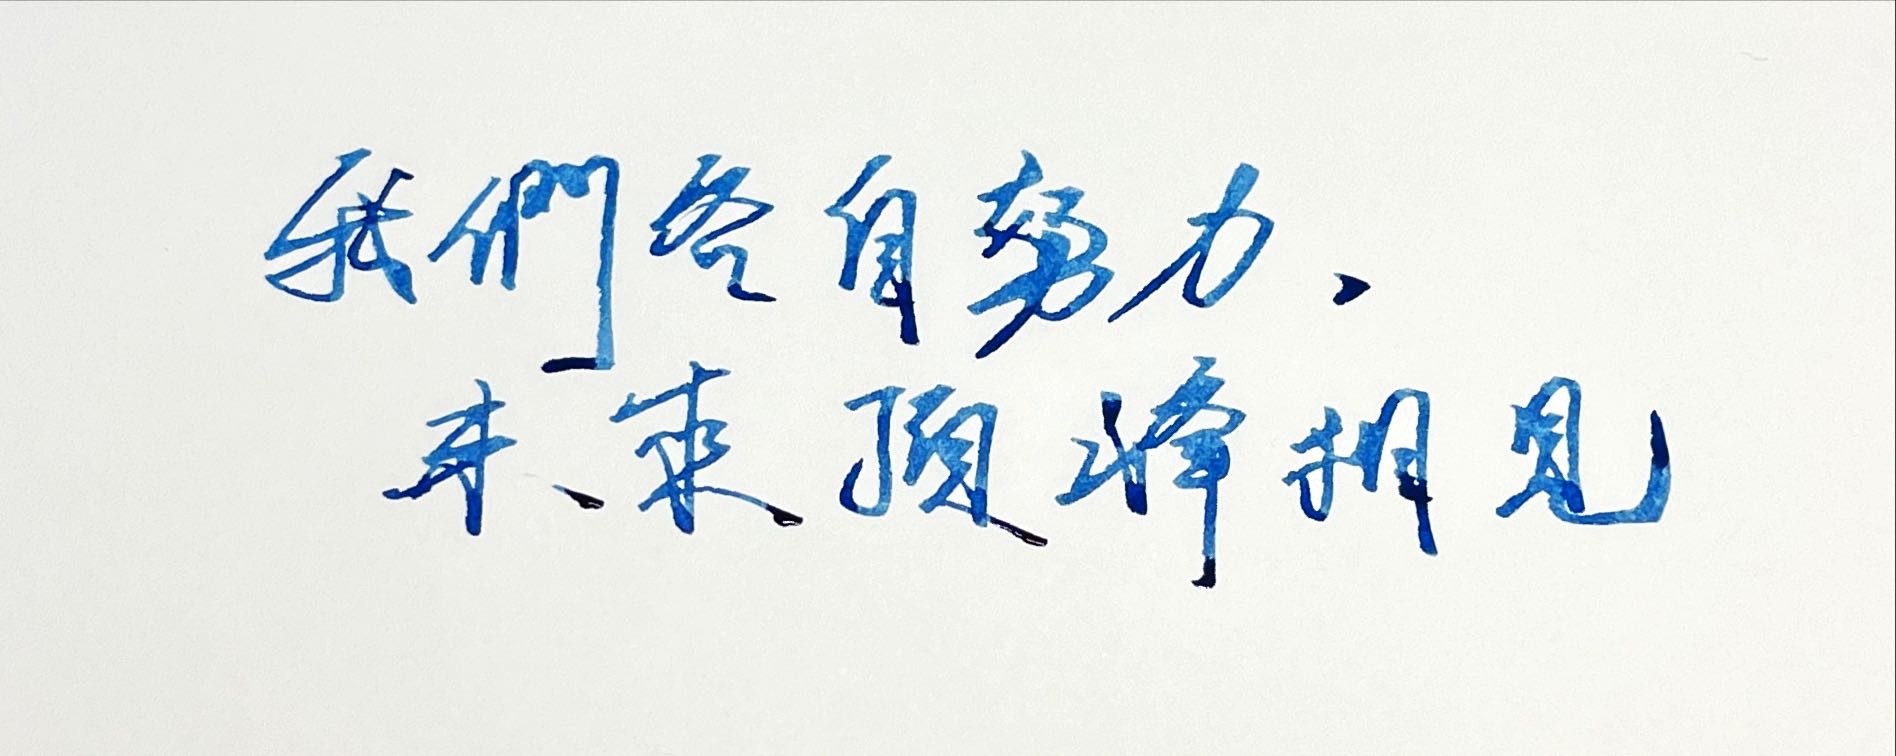 我們各自努力、
未來頂峰相見